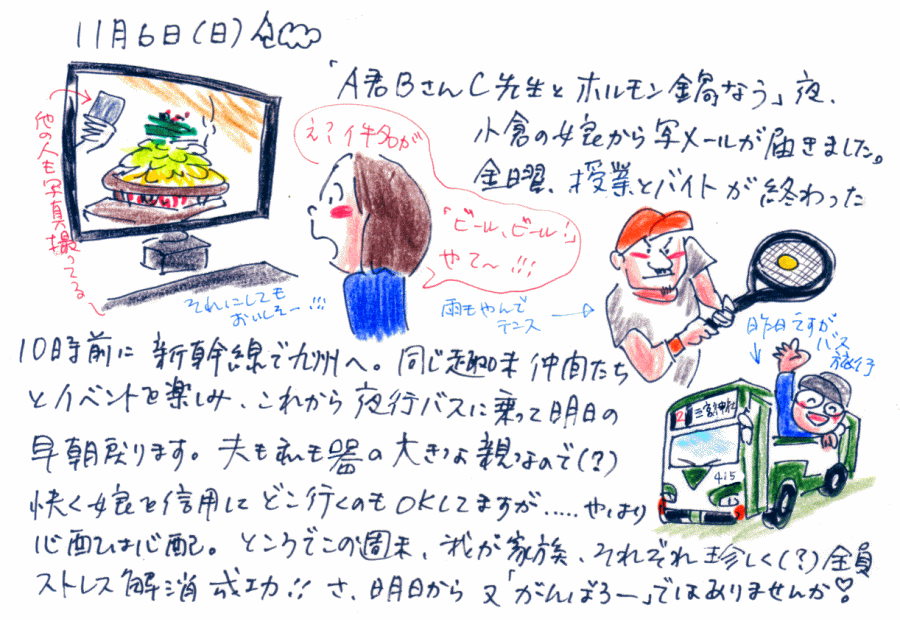 11月6日(日)
「A君BさんC先生とホルモン鍋なう」夜、
小倉の娘から写メールが届きました。
金曜、授業とバイトが終わった
他の人も写真撮ってる
え?件名が
「ビール、ビール!」
やて〜!!!
それにしても
おいしそー!!!
雨もやんで
テニス
昨日ですが
バス
旅行
10時前に新幹線で九州へ。同じ趣味仲間たち
とイベントを楽しみ、これから夜行バスに乗って明日の
早朝戻ります。夫も私も器の大きな親なので(?)
快く娘を信用してどこ行くのもOKしてますが.....やはり
心配は心配。ところでこの週末、我が家族、それぞれ珍しく(?)全員
ストレス解消成功!!さ、明日から又「がんばろー」ではありませんか!
2
415